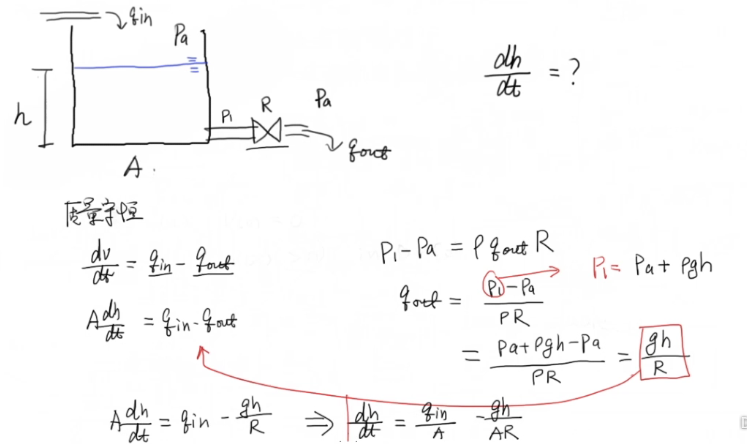 qin
Pa
h
P1 R Pa
qout
A.
dh/dt = ?
质量守恒
dv/dt = qin - qout
A dh/dt = qin - qout
P1 - Pa = ρ qout R
P1 = Pa + ρgh
qout = (P1 - Pa)/(ρR)
= (Pa + ρgh - Pa)/(ρR) = gh/R
A dh/dt = qin - gh/R ⇒ dh/dt = qin/A - gh/AR